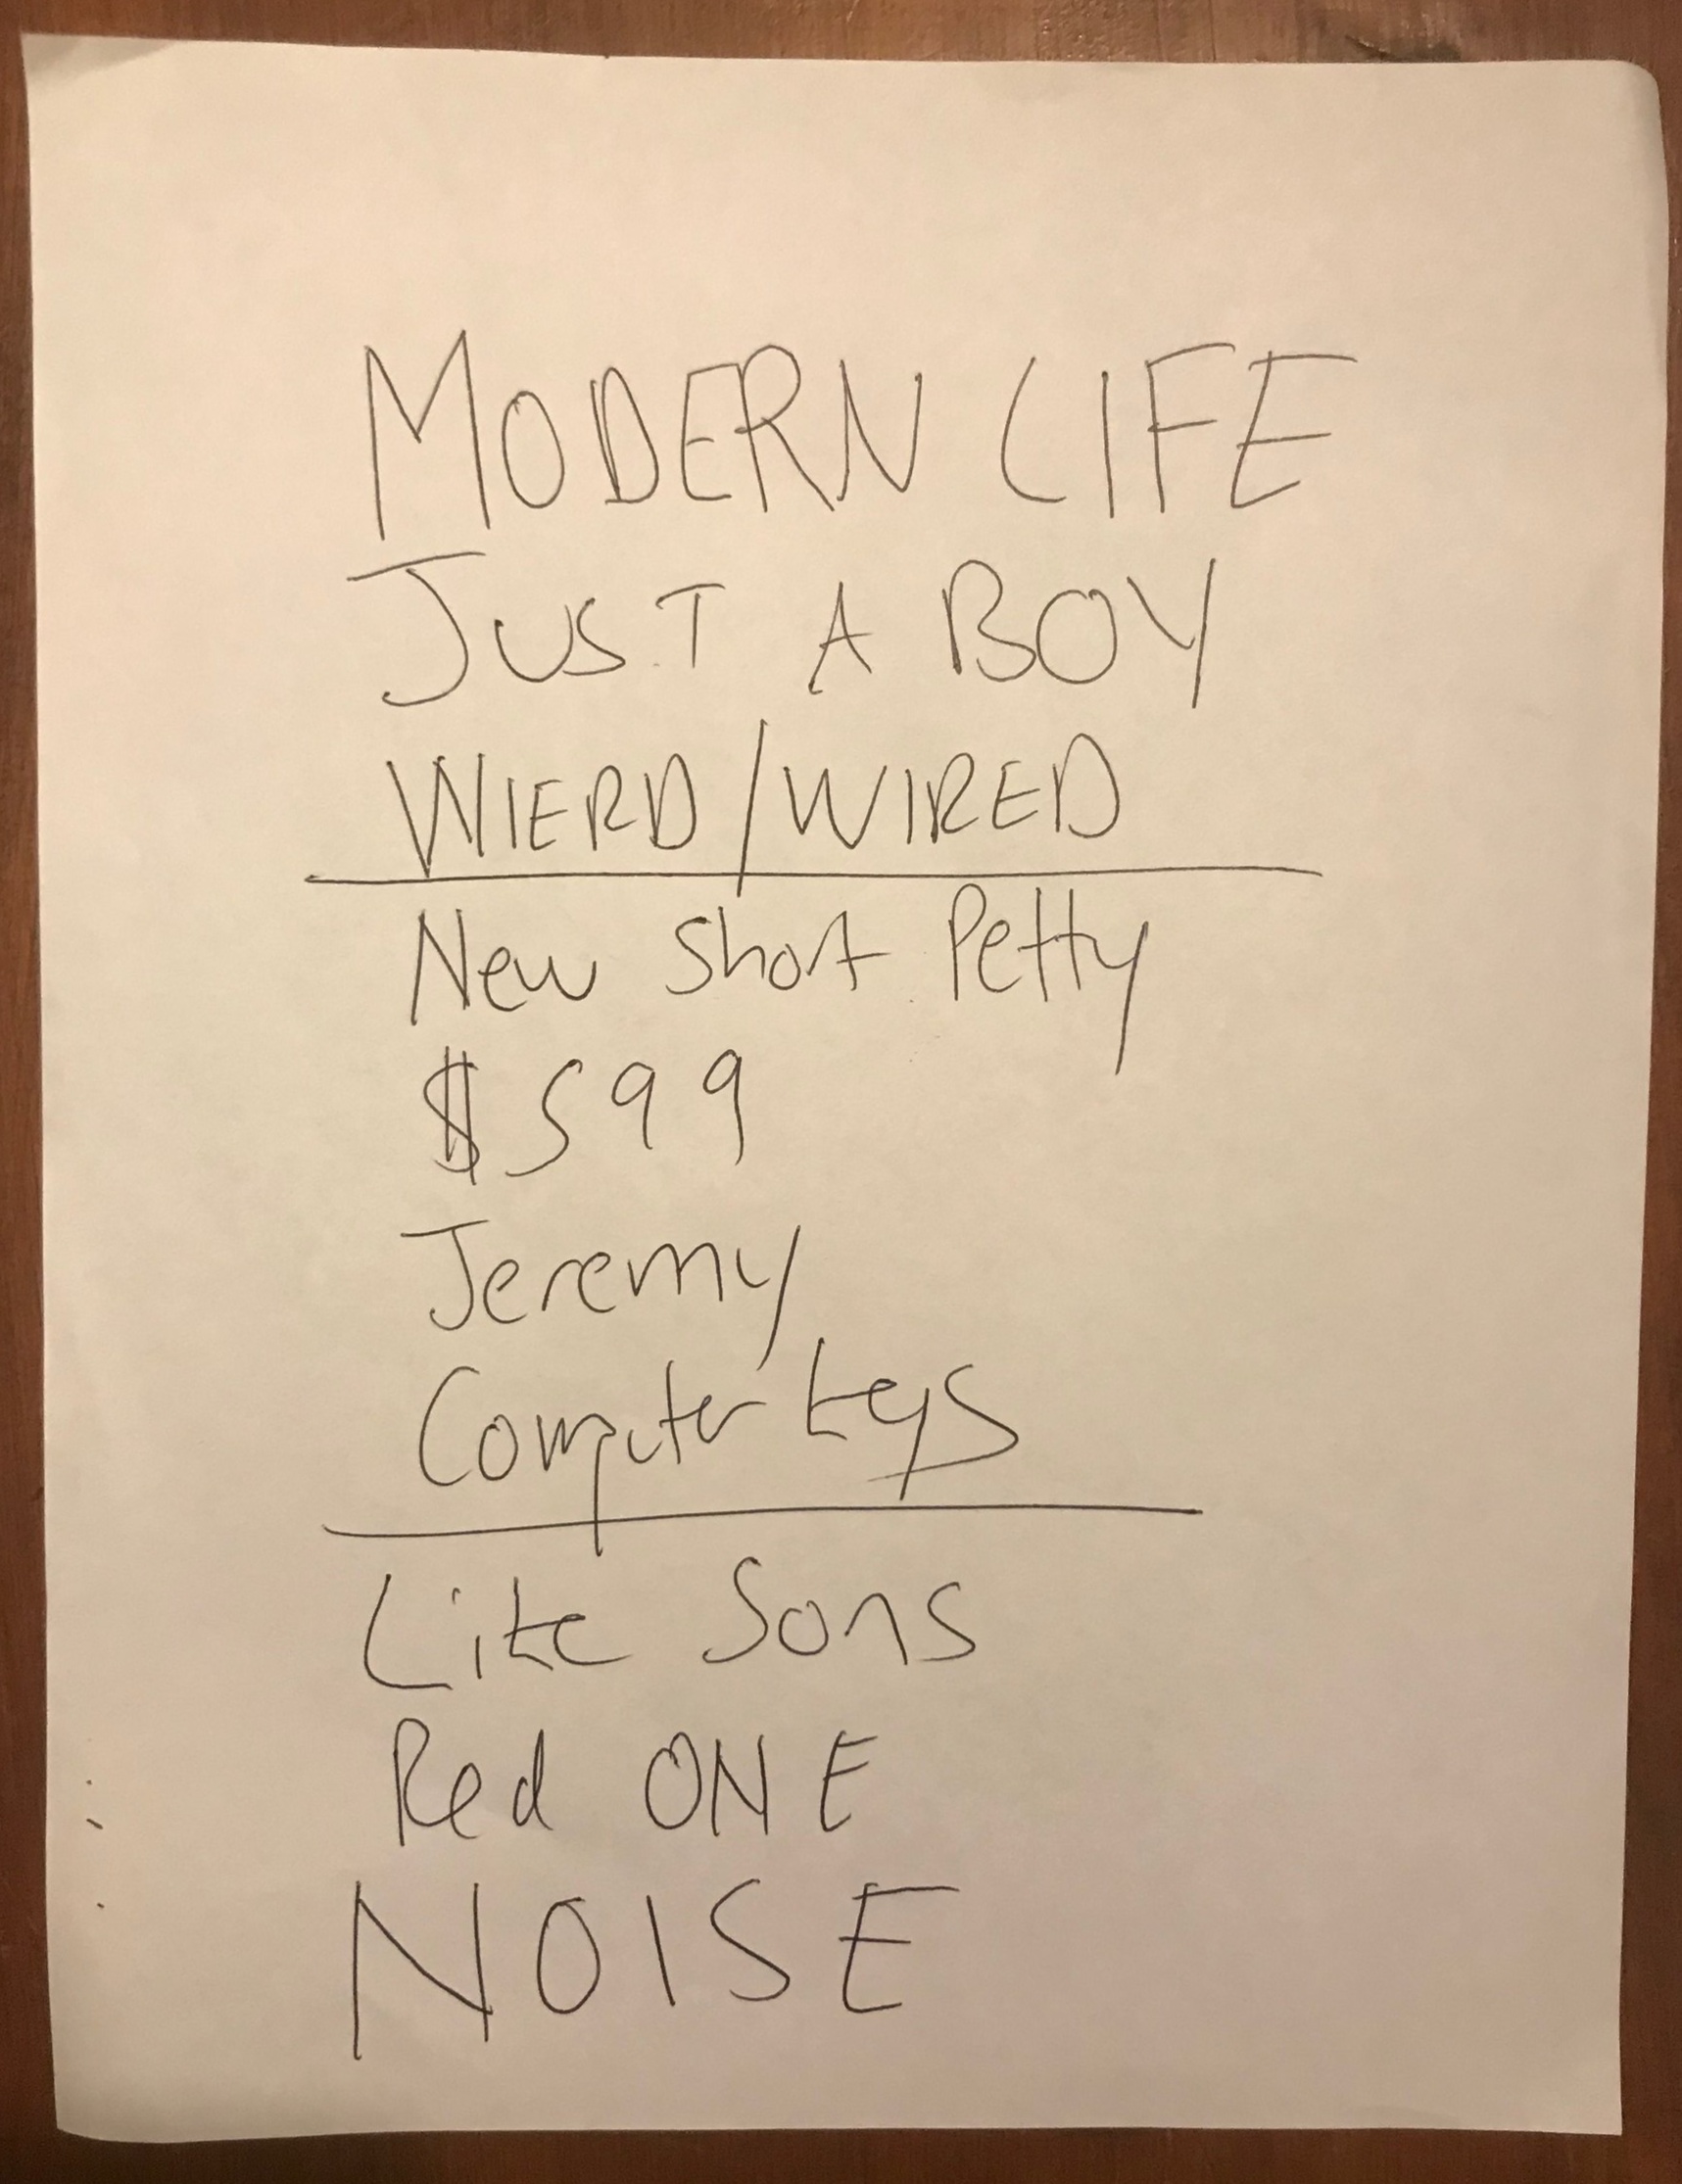 MODERN LIFE
JUST A BOY
WIERD/WIRED
New Short Petty
$599
Jeremy
Computer keys
Like Sons
Red ONE
NOISE